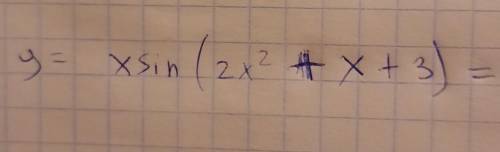 y = x sin (2x² + x + 3) =